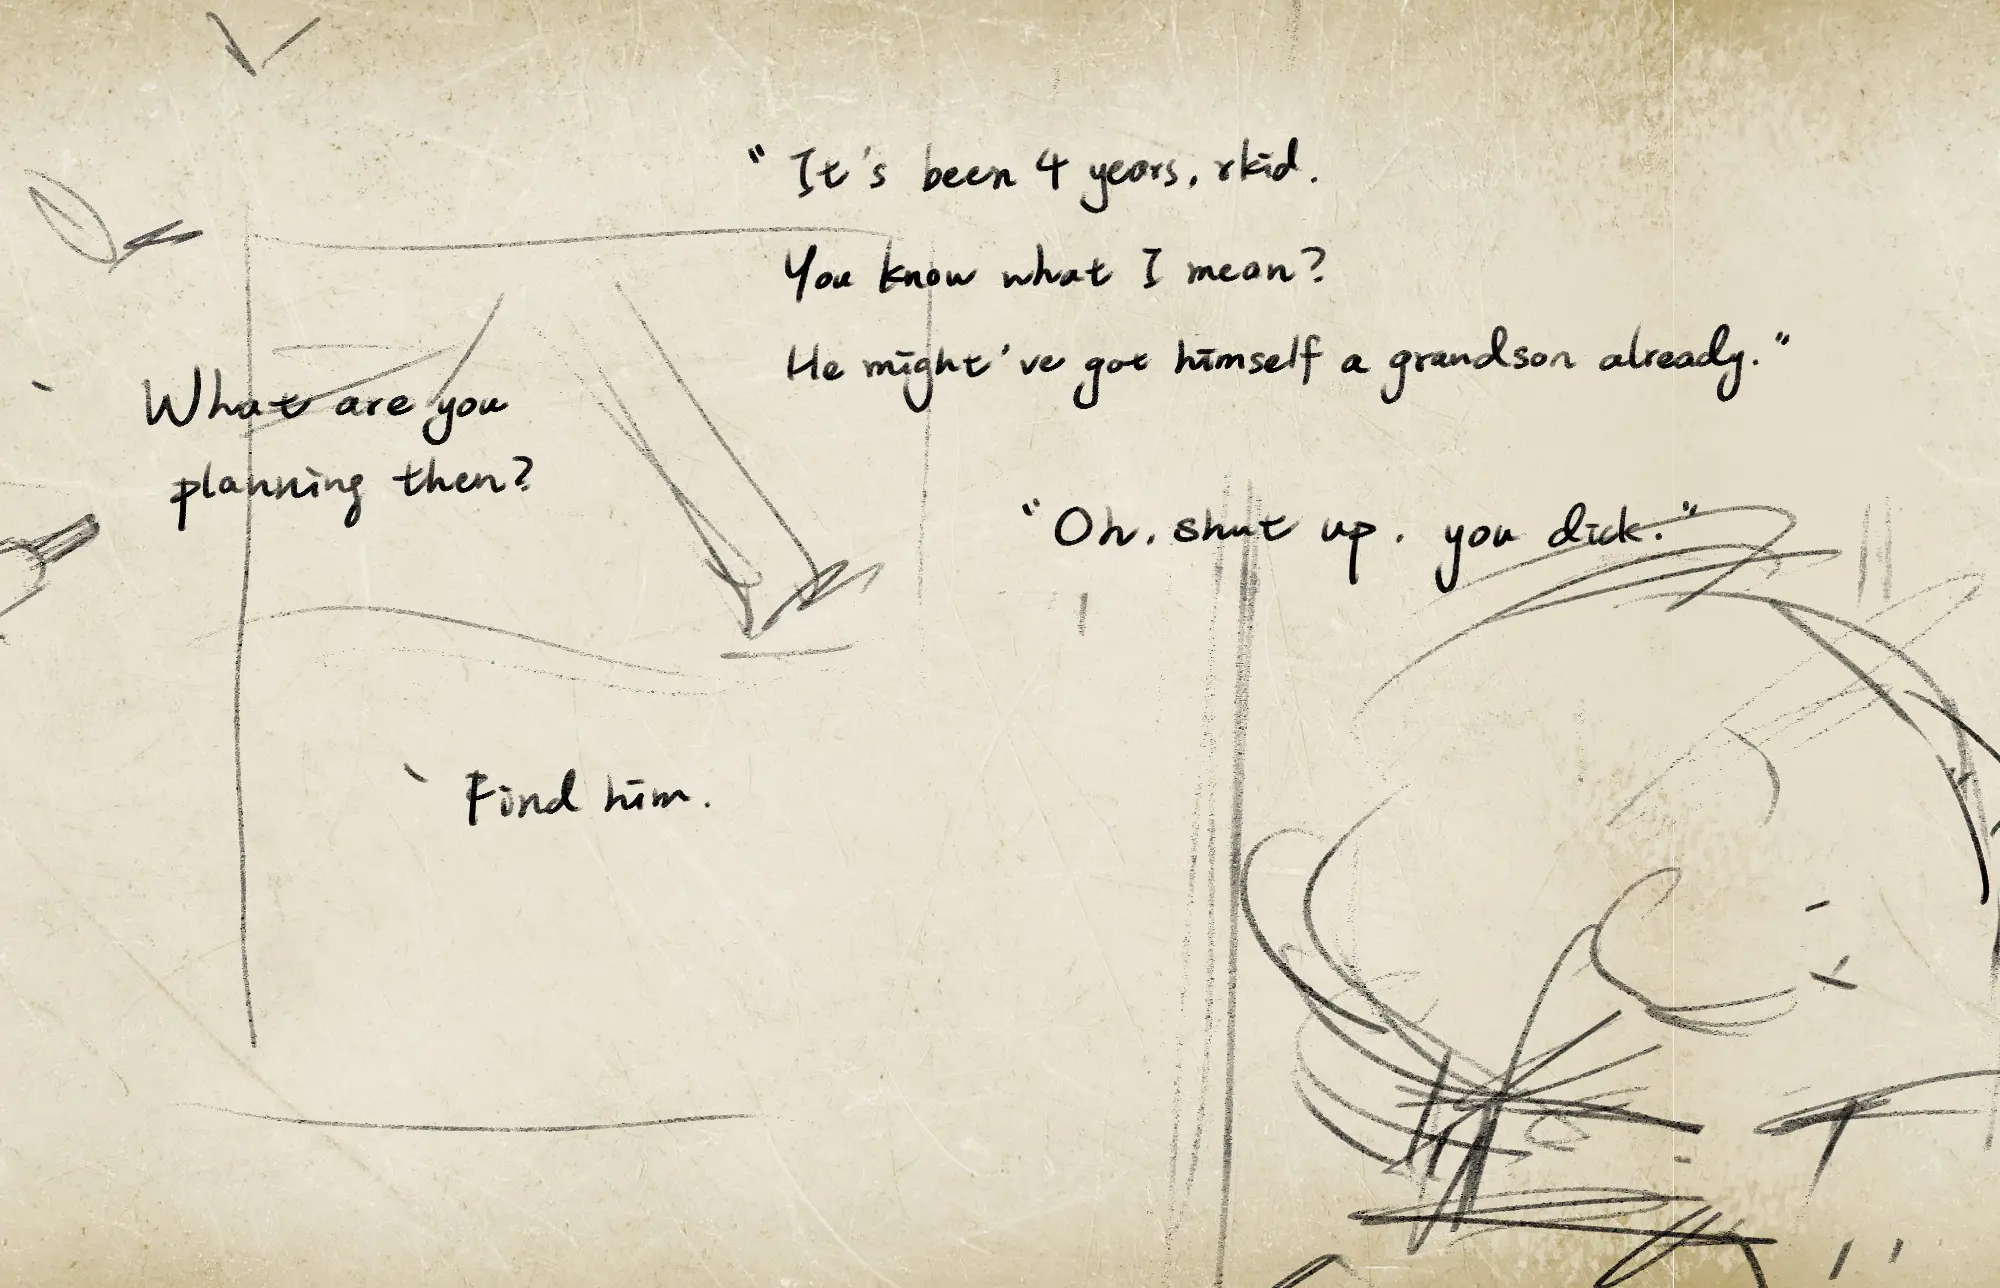 " It's been 4 years, rkid.
You know what I mean?
He might've got himself a grandson already."
What are you
planning then?
"Oh, shut up, you dick."
` Find him.